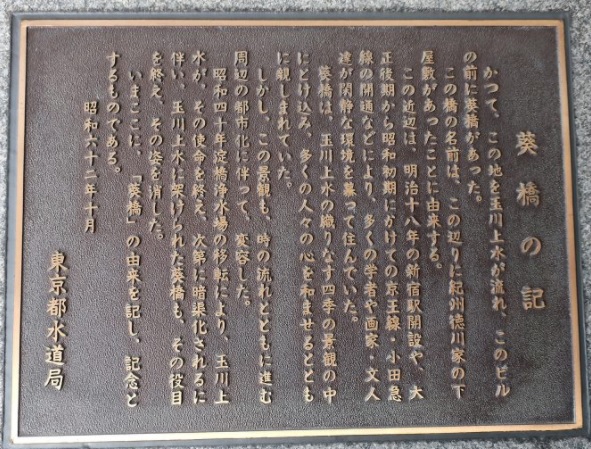 葵橋の記
かつて、この地を玉川上水が流れ、このビル
の前に葵橋があった。
この橋の名前は、この辺りに紀州徳川家の下
屋敷があったことに由来する。
この近辺は、明治十八年の新宿駅開設や、大
正後期から昭和初期にかけての京王線・小田急
線の開通などにより、多くの学者や画家・文人
達が閑静な環境を慕って住んでいた。
葵橋は、玉川上水の織りなす四季の景観の中
にとけ込み、多くの人々の心を和ませるととも
に親しまれていた。
しかし、この景観も、時の流れとともに進む
周辺の都市化に伴って、変容した。
昭和四十年淀橋浄水場の移転により、玉川上
水が、その使命を終え、次第に暗渠化されるに
伴い、玉川上水に架けられた葵橋も、その役目
を終え、その姿を消した。
いまここに、「葵橋」の由来を記し、記念と
するものである。
昭和六十二年十月
東京都水道局